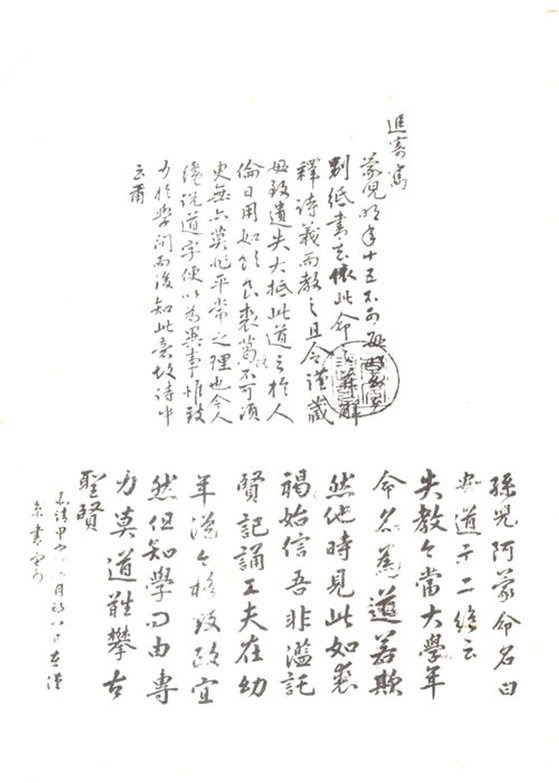 追寄寯
蒙兒明年十五不可無
別紙書去依此命之並解
釋詩義而教之且令謹藏
毋致遺失大抵此道之於人
倫日用如飲食裘葛不可須
臾無亦莫非平常之理也今人
纔說道字便以為異事惟致
力於學問而後知此意故詩中
云爾
孫兒阿蒙命名曰
安道示二絶云
失教今當大學年
命名為道若欺
然他時見此如裘
褐始信吾非濫託
賢記誦工夫在幼
年從今格致政宜
然但知學問由專
力莫道難攀古
聖賢
嘉靖甲寅月初八日在漢
京書寄